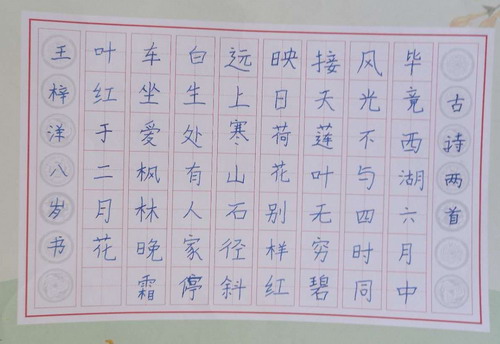 古诗两首
毕竟西湖六月中
风光不与四时同
接天莲叶无穷碧
映日荷花别样红
远上寒山石径斜
白生处有人家停
车坐爱枫林晚霜
叶红于二月花
王梓洋八岁书